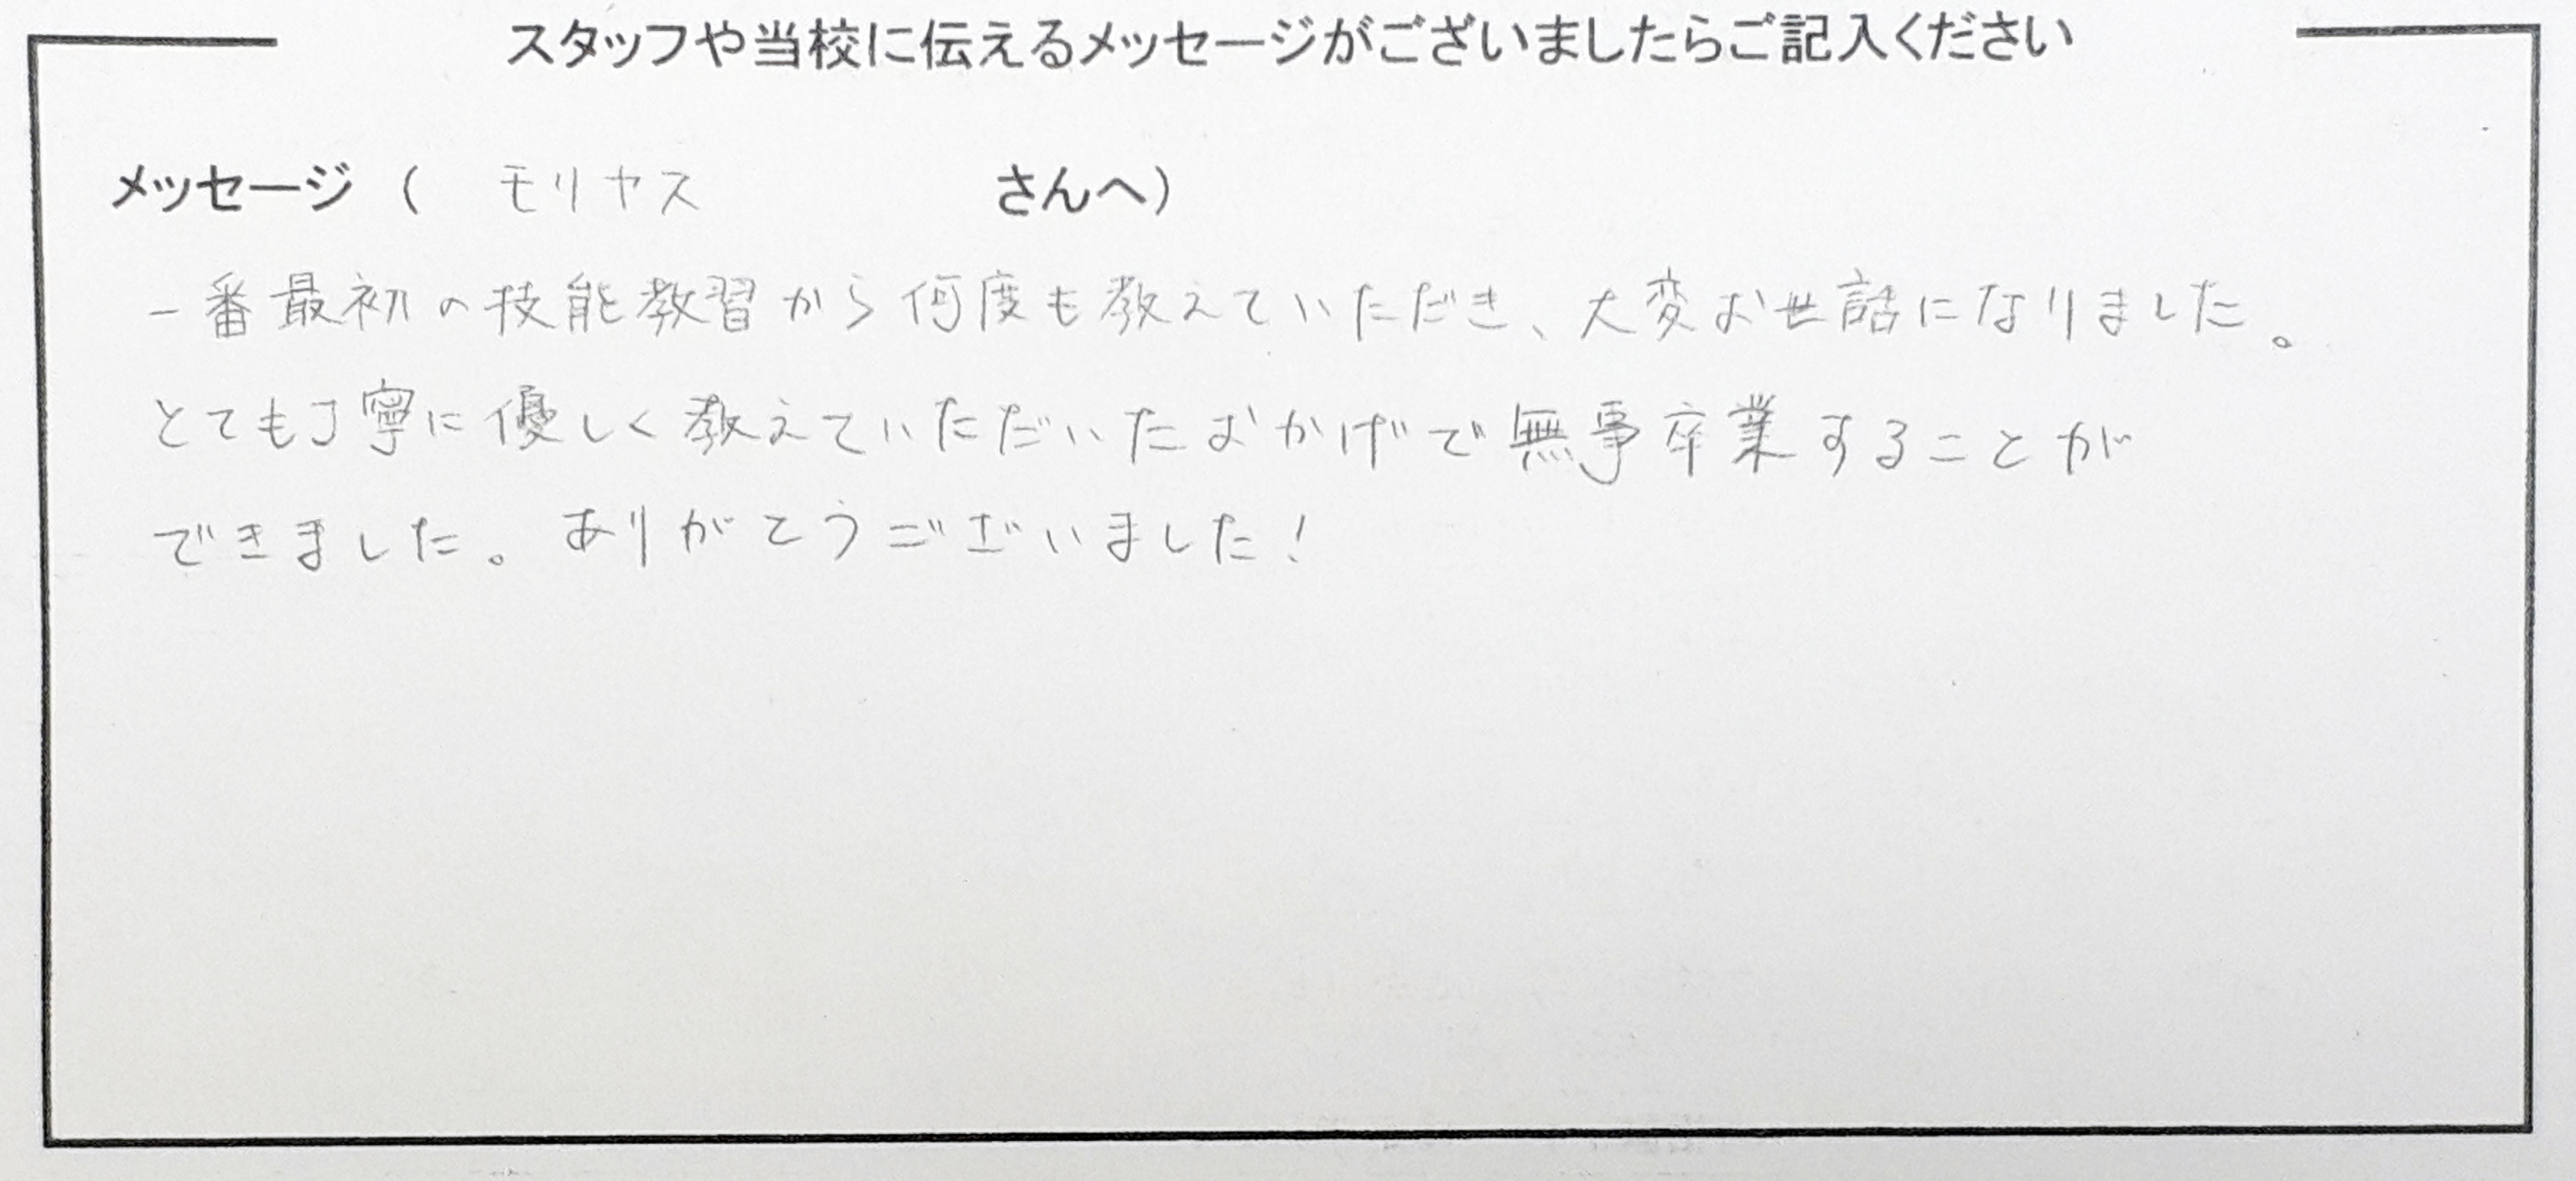 スタッフや当校に伝えるメッセージがございましたらご記入ください
メッセージ ( モリヤス さんへ)
一番最初の技能教習から何度も教えていただき、大変お世話になりました。
とても丁寧に優しく教えていただいたおかげで無事卒業することが
できました。ありがとうございました!